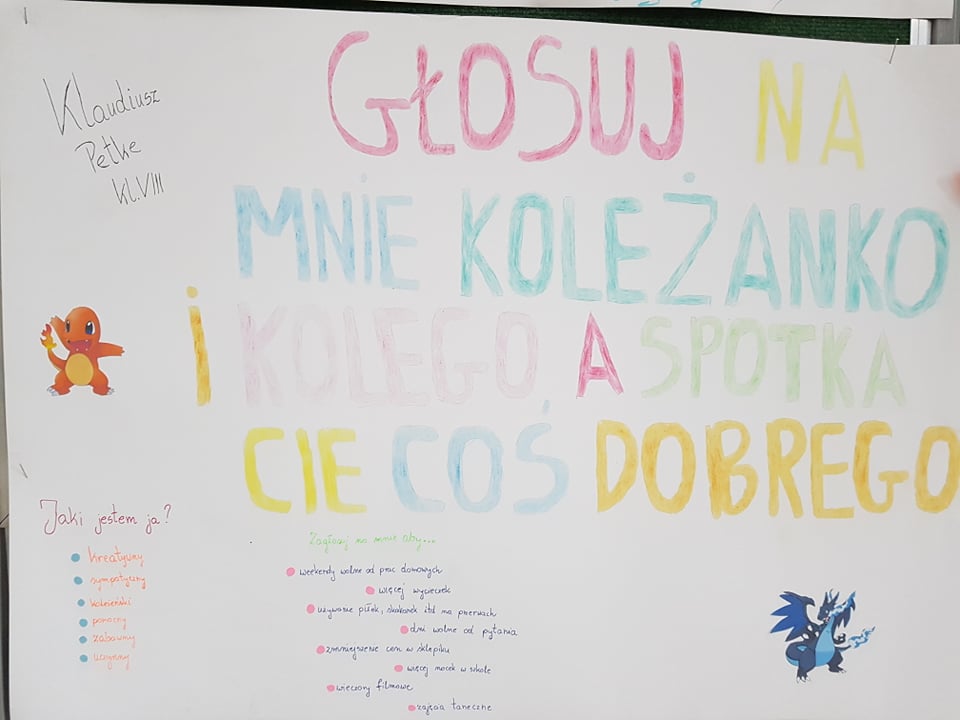 Klaudiusz
Petke
kl.VIII
GŁOSUJ NA
MNiE KOLEŻANKO
i KOLEGO A SPOTKA
CIE COŚ DOBREGO
Jaki jestem ja?
kreatywny
sympatyczny
koleżeński
pomocny
zabawny
uczynny
Zagłosuj na mnie aby...
weekendy wolne od prac domowych
więcej wycieczek
używanie piłek, skakanek itd na przerwach
dni wolne od pytania
zmniejszenie cen w sklepiku
więcej nocek w szkole
wieczory filmowe
zajęcia taneczne